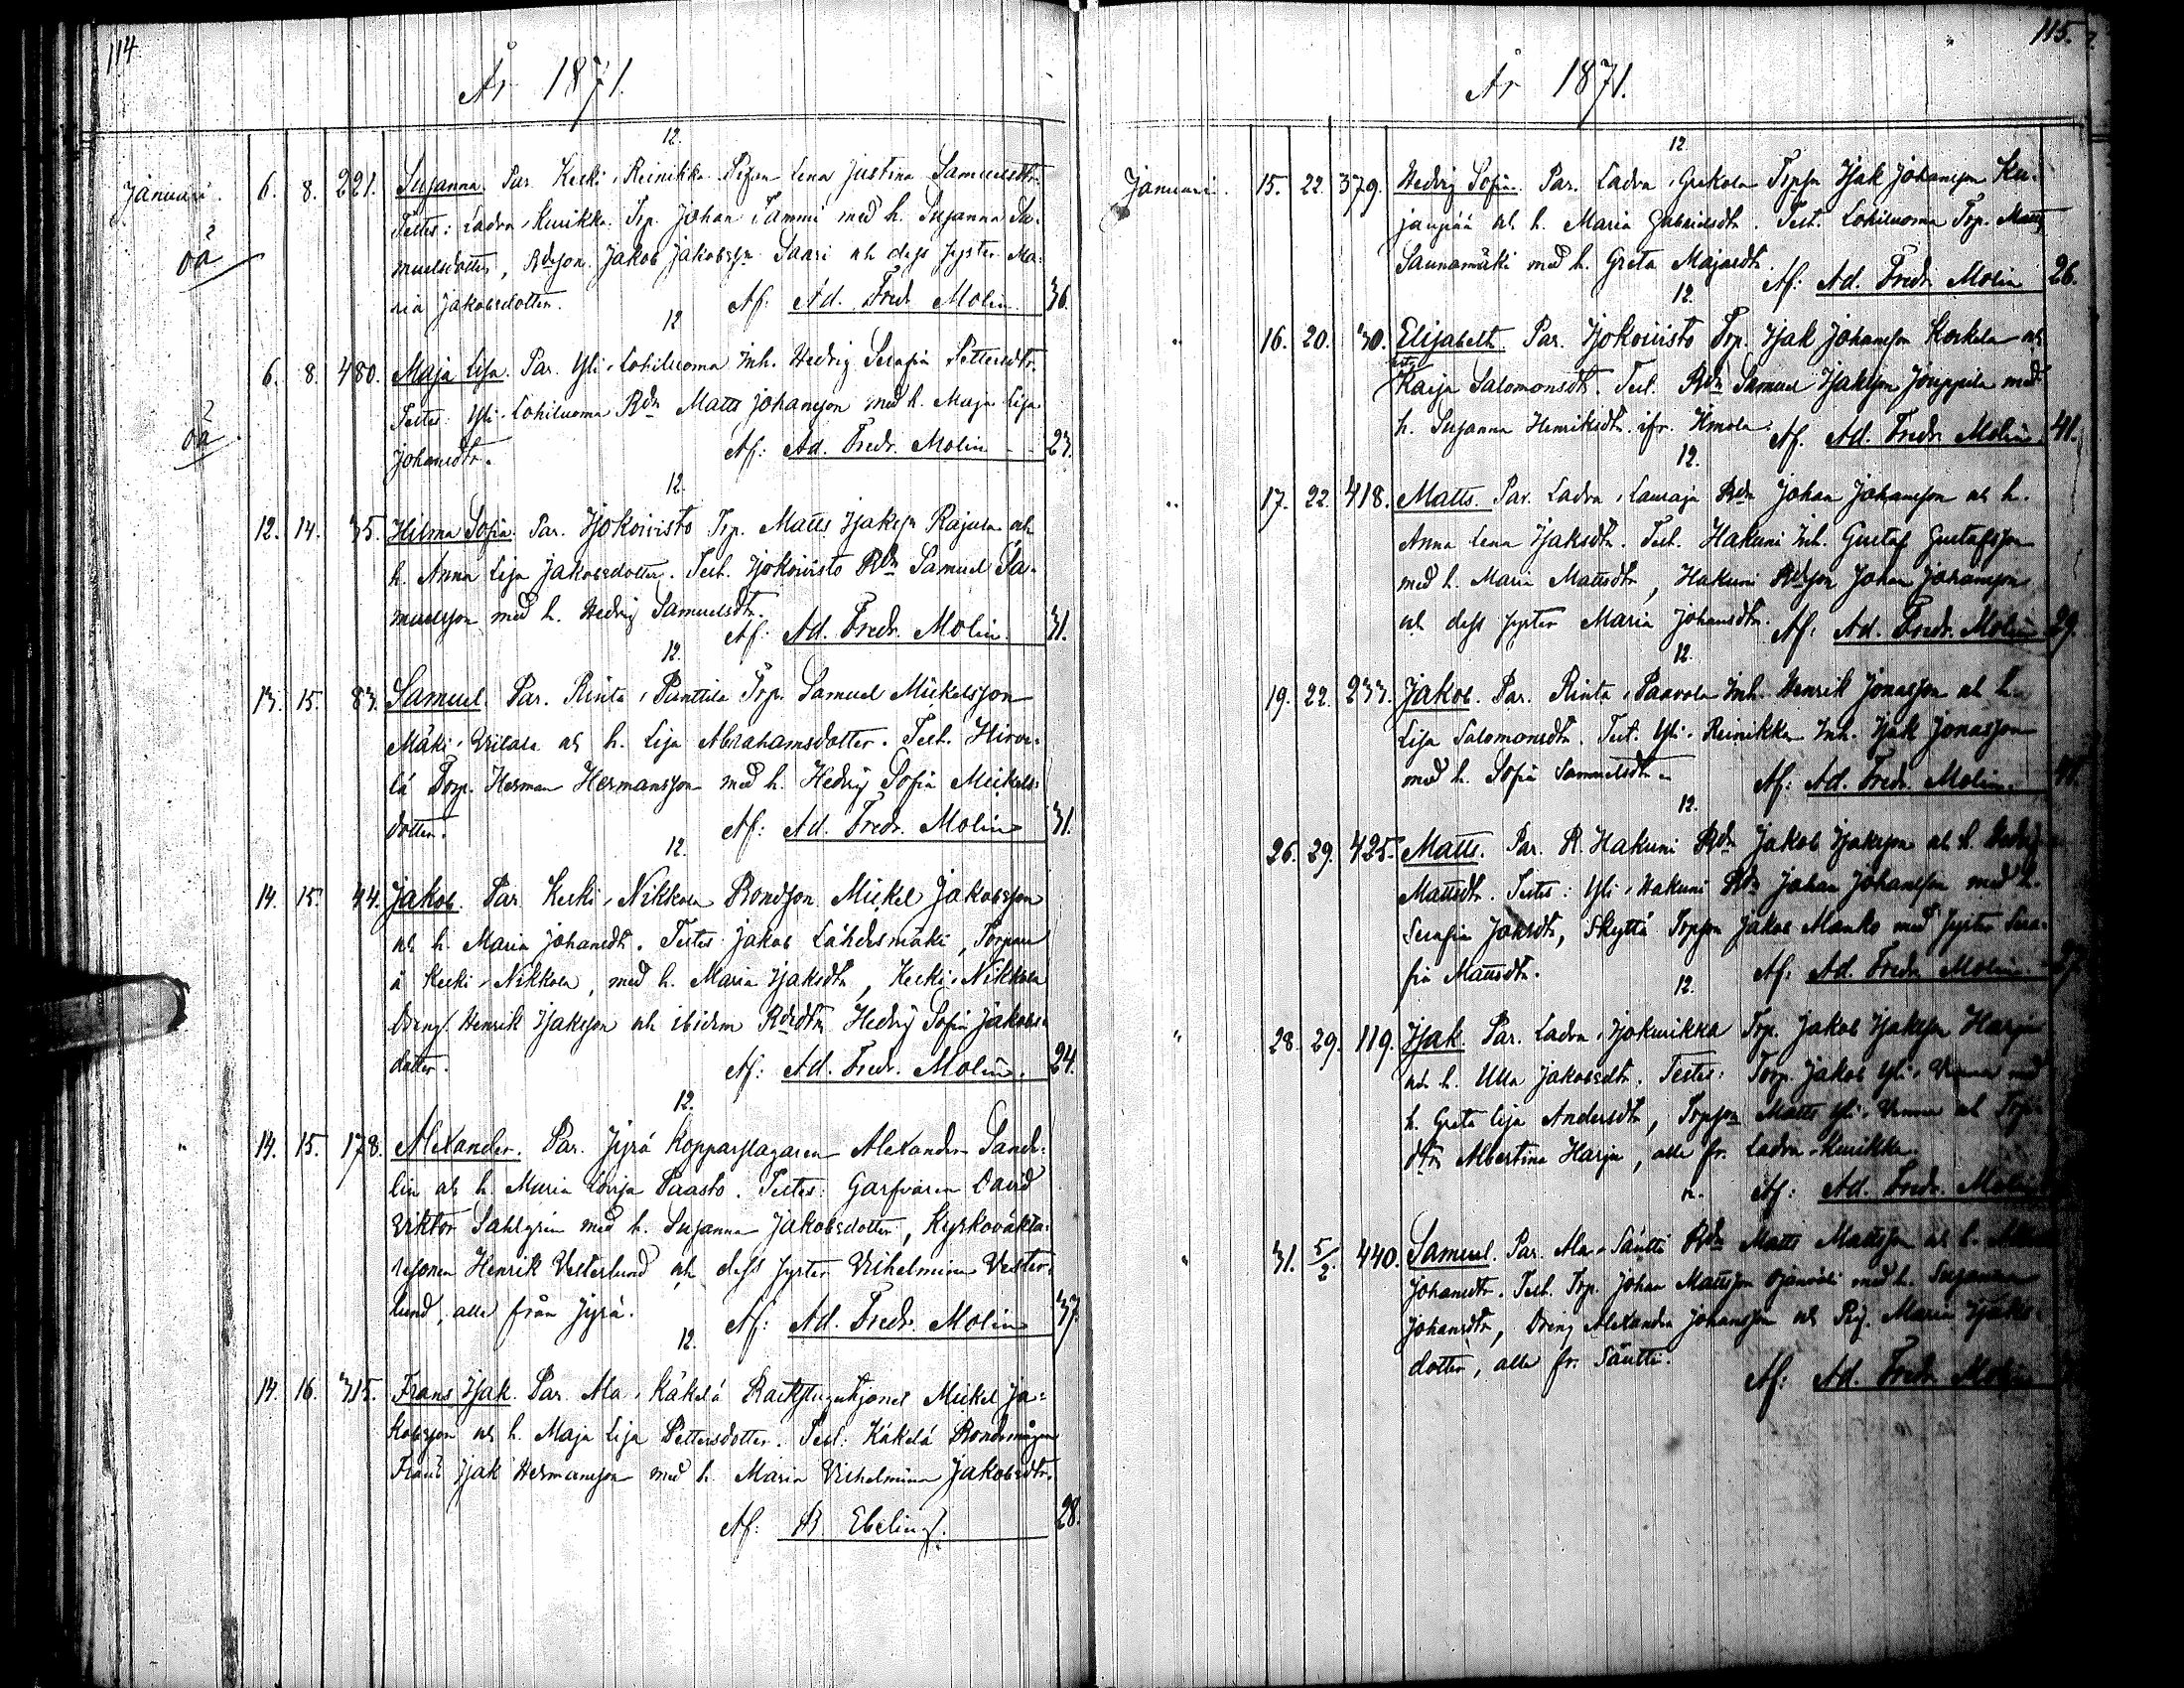 114
År 1871.
12.
Januari. 6. 8. 221. Susanna. Par. Keski-Reinikka Pigan Lena Justina Samuelsdtr.
Testes: Ladva-Kurikka Trp. Johan Tammi med h. Susanna Sa-
oä muelsdotter, Rdeson Jakob Jakobsson Saari och dess syster Ma-
ria Jakobsdotter. Af: Ad. Fredr. Molin. 36.
12
6. 8. 480. Maja Lisa. Par. Yli-Lohiluoma Inh. Hedvig Serafia Pettersdtr.
Testes: Yli-Lohiluoma Bdn Matts Johansson med h. Maja Lisa
oä Johansdtr. Af: Ad. Fredr. Molin 23.
12.
12. 14. 35. Hilma Sofia. Par. Jjokoivisto Trp. Matts Isaksson Rajala och
h. Anna Lisa Jakobsdotter. Test. Jjokoivisto Bdn Samuel Sa-
muelsson med h. Hedvig Samuelsdtr.
Af: Ad. Fredr. Molin. 31.
12.
13. 15. 83. Samuel. Par. Rinta-Panttila Trp. Samuel Mickelsson
Mäki- och h. Lisa Abrahamsdotter. Test. Hirve-
lä Torp. Herman Hermansson med h. Hedvig Sofia Mickels-
dotter. Af: Ad. Fredr. Molin 31.
12.
14. 15. 44. Jakob. Par. Keski-Nikkola Bondson Mickel Jakobsson
och h. Maria Johansdtr. Testes: Jakob Lähdesmäki, Torpare
å Keski-Nikkola, med h. Maria Isaksdtr, Keski-Nikkola
Dreng Henrik Isaksson och ibidem Bdedtr Hedvig Sofia Jakobs-
dotter. Af: Ad. Fredr. Molin. 24.
12.
" 14. 15. 178. Alexander. Par. Jyrä Kopparslagaren Alexander Sande-
lin och h. Maria Lovisa Paasto. Testes: Garfvaren David
Viktor Sahlgrén med h. Susanna Jakobsdotter, Kyrkovakta-
resonen Henrik Vesterlund och dess syster Vilhelmina Vester-
lund, alla från Jyrä. Af: Ad. Fredr. Molin 37.
12.
14. 16. 315. Frans Isak. Par. Ala-Käkelä Mickel Ja-
kobsson och h. Maja Lisa Pettersdotter. Test: Käkelä Bondemågen
Frans Isak Hermansson med h. Maria Vilhelmina Jakobsdtr.
Af: B. Ebeling. 28.
115.
År 1871.
12
Januari. 15. 22. 379. Hedvig Sofia. Par. Ladva-Grekola Trpson Isak Johansson Ku-
janpää och h. Maria Gabrielsdtr. Test. Lohiluoma Trp. Matts
Saunamäki med h. Greta Majasdtr.
12. Af: Ad. Fredr. Molin 26.
" 16. 20. 30. Elisabeth. Par. Jjokoivisto Trp. Isak Johansson Korkela och
Kaisa Salomonsdtr. Test. Bdn Samuel Isaksson Jouppila med
h. Susanna Henriksdtr. ifr. Ilmola.
12. Af. Ad. Fredr. Molin 41.
" 17. 22. 418. Matts. Par. Ladva-Lauraja Bdn Johan Johansson och h.
Anna Lena Isaksdtr. Test. Hakuni Inh. Gustaf Gustafsson
med h. Maria Mattsdtr, Hakuni Bdson Johan Johansson
och dess syster Maria Johansdtr. Af: Ad. Fredr. Molin 29.
12.
19. 22. 233. Jakob. Par. Rinta-Paavola Inh. Henrik Jonasson och h.
Lisa Salomonsdtr. Test. Yli-Reinikka Inh. Isak Jonasson
med h. Sofia Samuelsdtr. Af: Ad. Fredr. Molin.
12.
26. 29. 425. Matts. Par. R. Hakuni Bdn Jakob Isaksson och h. Hedvig
Mattsdtr. Testes: Yli-Hakuni Bdn Johan Johansson med h.
Serafia Johsdtr, Skyttä Trpson Jakob Manko med syster Sera-
fia Mattsdtr. 12. Af: Ad. Fredr. Molin
" 28. 29. 119. Isak. Par. Ladva-Jjokurikka Trp. Jakob Isaksson Harju
och h. Ulla Jakobsdtr. Testes: Torp. Jakob Yli- med
h. Greta Lisa Andersdtr, Trpson Matts Yli- och Trp-
dtr Albertina Harju, alla fr. Ladva-Kurikka.
12. Af: Ad. Fredr. Molin
" 31. 5/2. 440. Samuel. Par. Ala-Säntti Bdn Matts Mattsson och h.
Johansdtr. Test. Trp. Johan Mattsson med h. Susanna
Johansdtr, Dreng Alexander Johansson och Pig. Maria Isaks-
dotter, alla fr. Säntti.
Af: Ad. Fredr. Molin